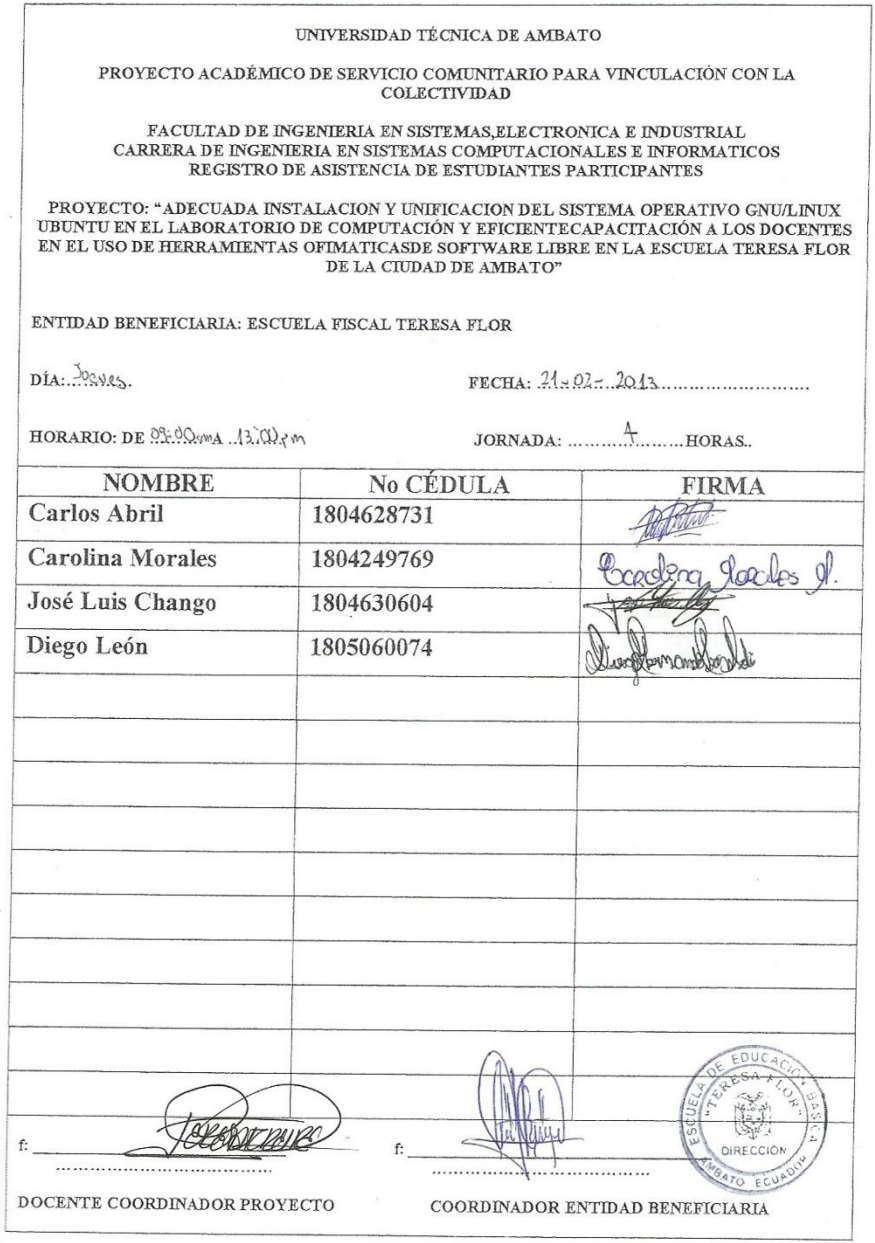 UNIVERSIDAD TÉCNICA DE AMBATO
PROYECTO ACADÉMICO DE SERVICIO COMUNITARIO PARA VINCULACIÓN CON LA
COLECTIVIDAD
FACULTAD DE INGENIERIA EN SISTEMAS,ELECTRONICA E INDUSTRIAL
CARRERA DE INGENIERIA EN SISTEMAS COMPUTACIONALES E INFORMATICOS
REGISTRO DE ASISTENCIA DE ESTUDIANTES PARTICIPANTES
PROYECTO: “ADECUADA INSTALACION Y UNIFICACION DEL SISTEMA OPERATIVO GNU/LINUX
UBUNTU EN EL LABORATORIO DE COMPUTACIÓN Y EFICIENTECAPACITACIÓN A LOS DOCENTES
EN EL USO DE HERRAMIENTAS OFIMATICASDE SOFTWARE LIBRE EN LA ESCUELA TERESA FLOR
DE LA CIUDAD DE AMBATO”
ENTIDAD BENEFICIARIA: ESCUELA FISCAL TERESA FLOR
DÍA: Jueves. FECHA: 21-02-2013
HORARIO: DE 09:00am A 13:00pm JORNADA: 4 HORAS..
NOMBRE No CÉDULA FIRMA
Carlos Abril 1804628731
Carolina Morales 1804249769 Carolina Morales
José Luis Chango 1804630604
Diego León 1805060074
f: f:
ESCUELA DE EDUCACIÓN BASICA
"TERESA FLOR"
DIRECCIÓN
AMBATO ECUADOR
DOCENTE COORDINADOR PROYECTO COORDINADOR ENTIDAD BENEFICIARIA